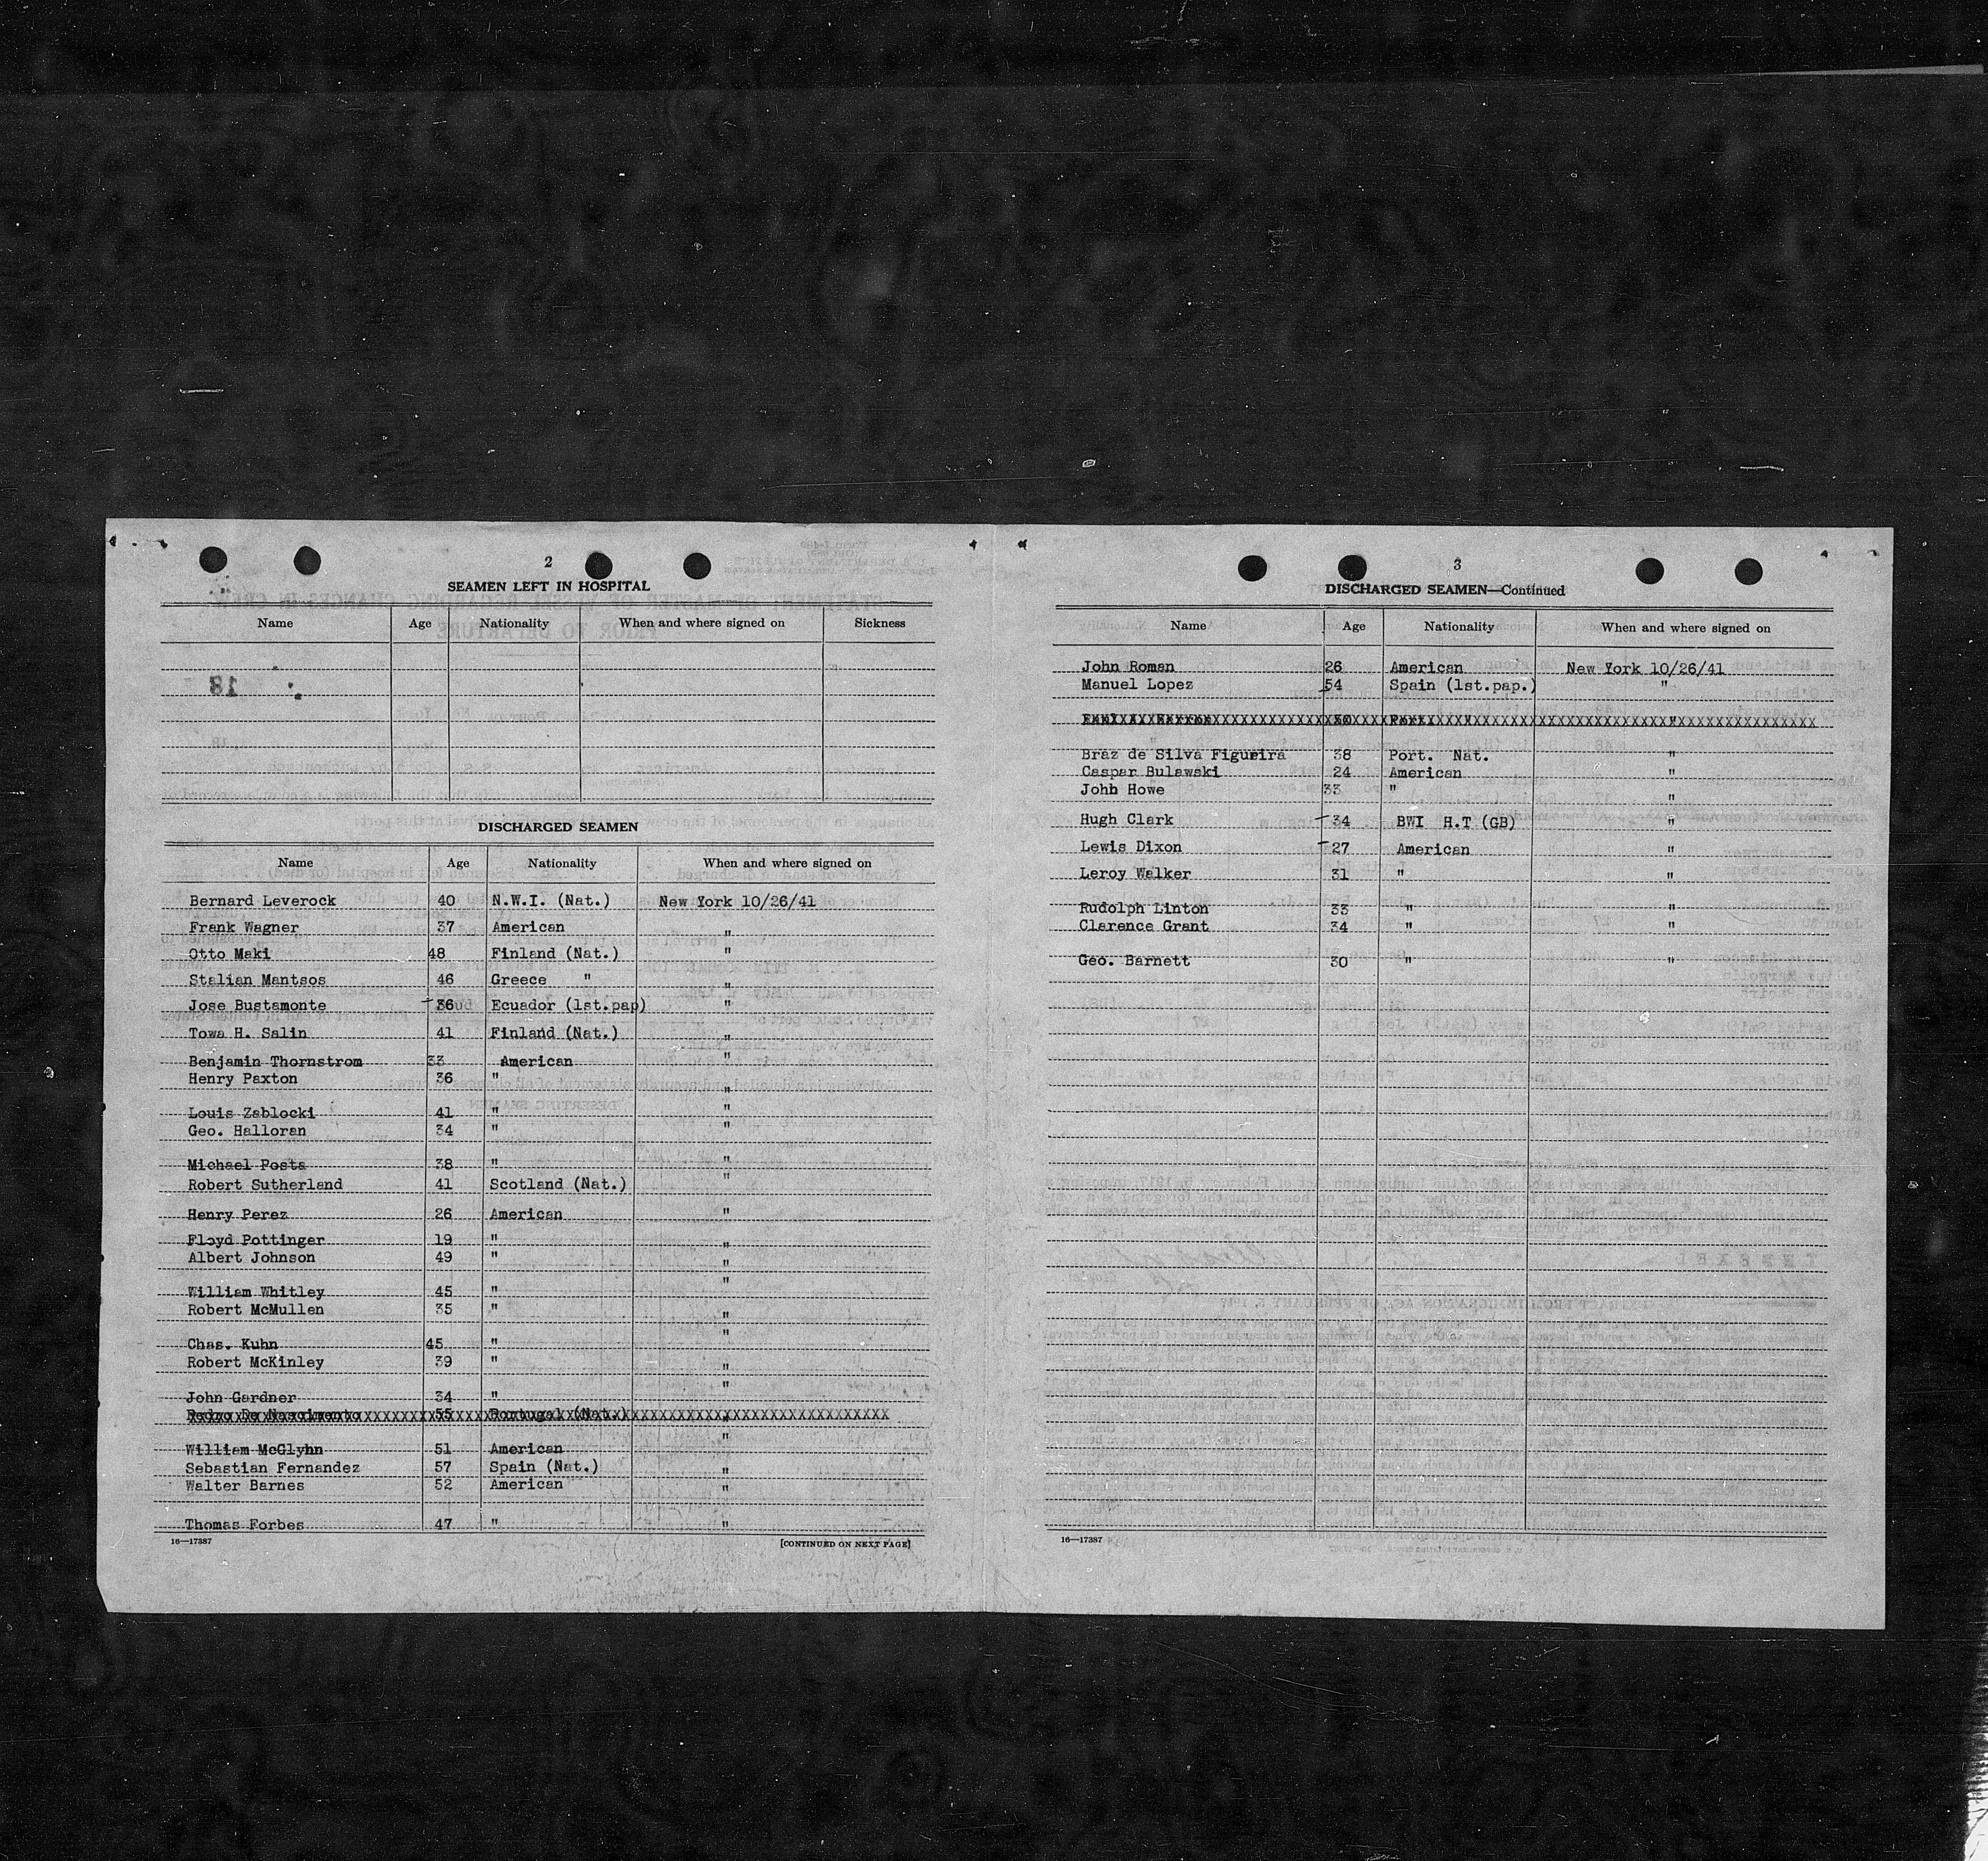 2
SEAMEN LEFT IN HOSPITAL
Name Age Nationality When and where signed on Sickness
18
DISCHARGED SEAMEN
Name Age Nationality When and where signed on
Bernard Leverock 40 N.W.I. (Nat.) New York 10/26/41
Frank Wagner 37 American "
Otto Maki 48 Finland (Nat.) "
Stalian Mantsos 46 Greece " "
Jose Bustamonte 36 Ecuador (1st.pap) "
Towa H. Salin 41 Finland (Nat.) "
Benjamin Thornstrom 33 American "
Henry Paxton 36 " "
Louis Zablocki 41 " "
Geo. Halloran 34 " "
Michael Posta 38 " "
Robert Sutherland 41 Scotland (Nat.) "
Henry Perez 26 American "
Floyd Pottinger 19 " "
Albert Johnson 49 " "
William Whitley 45 " "
Robert McMullen 35 " "
Chas. Kuhn 45 " "
Robert McKinley 39 " "
John Gardner 34 " "
Pedro De Nascimento 55 Portugal (Nat.) "
William McGlyhn 51 American "
Sebastian Fernandez 57 Spain (Nat.) "
Walter Barnes 52 American "
Thomas Forbes 47 " "
16—17387 [CONTINUED ON NEXT PAGE]
3
DISCHARGED SEAMEN—Continued
Name Age Nationality When and where signed on
John Roman 26 American New York 10/26/41
Manuel Lopez 54 Spain (1st.pap.) "
Braz de Silva Figueira 38 Port. Nat. "
Caspar Bulawski 24 American "
John Howe 33 " "
Hugh Clark 34 BWI H.T (GB) "
Lewis Dixon 27 American "
Leroy Walker 31 " "
Rudolph Linton 33 " "
Clarence Grant 34 " "
Geo. Barnett 30 " "
16—17387